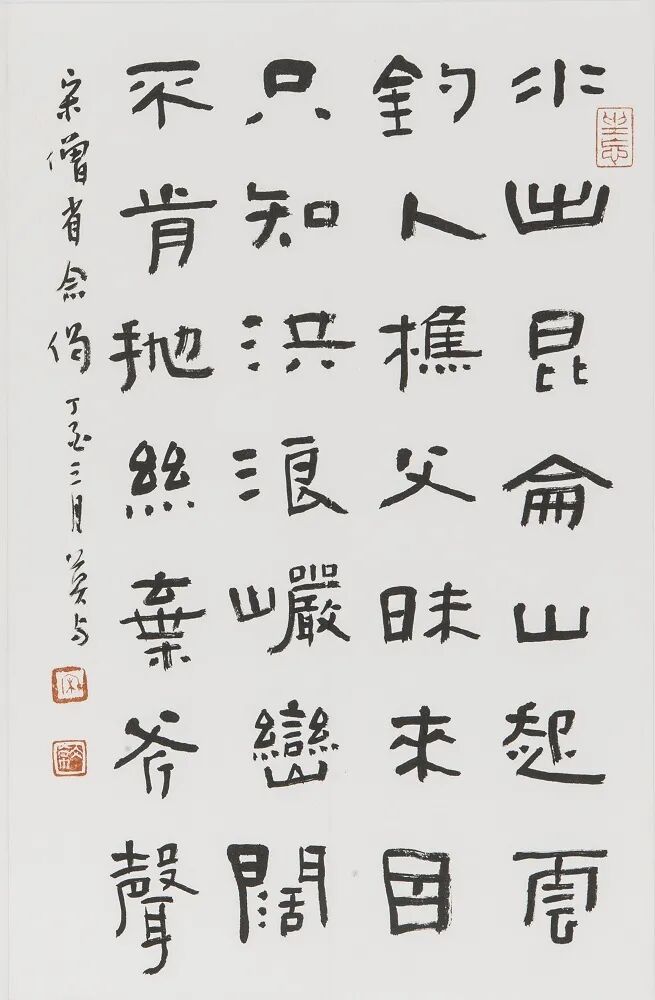 水出昆侖山起雲
釣人樵父昧來因
只知洪浪巖巒闊
不肯拋絲棄斧聲
宋僧省念偈 丁 三月
坐忘